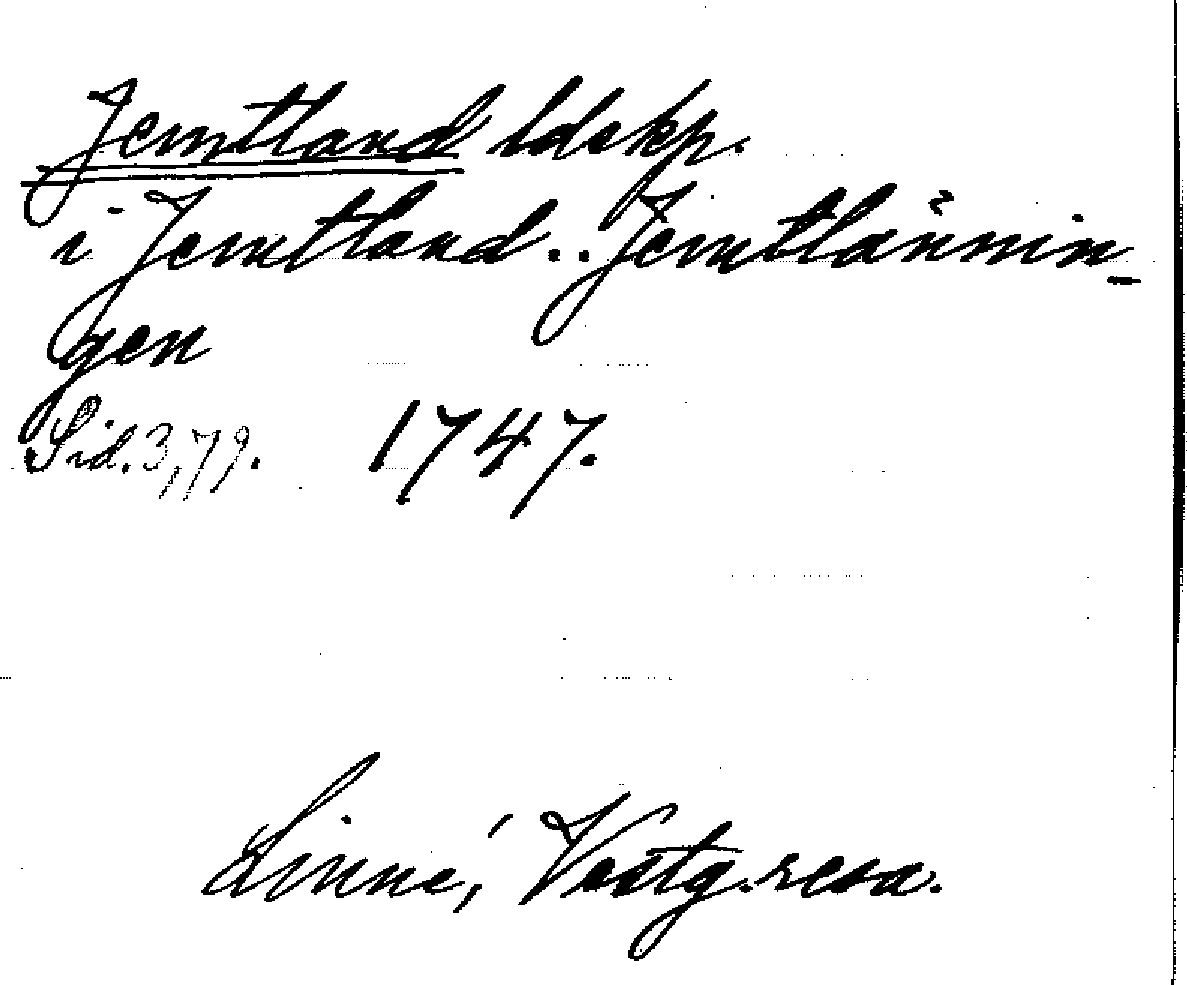 Jemtland ldskp.
i Jemtland.. Jemtlännin-
gen
Sid. 3, 79. 1747.
Linné, Vestg. resa.